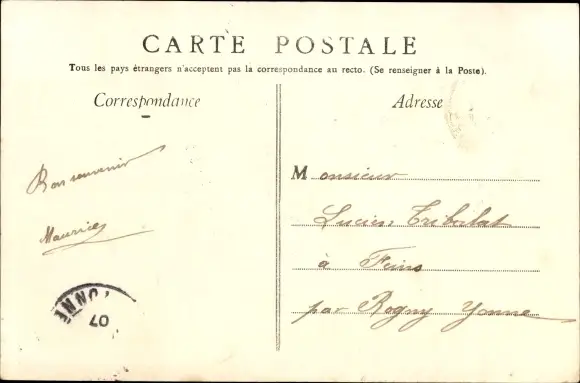 CARTE POSTALE
Tous les pays étrangers n'acceptent pas la correspondance au recto. (Se renseigner à la Poste).
Correspondance
Adresse
Bon souvenir
Maurice
Monsieur
Lucien Tribalat
à
par Rogny Yonne
ONNE
07